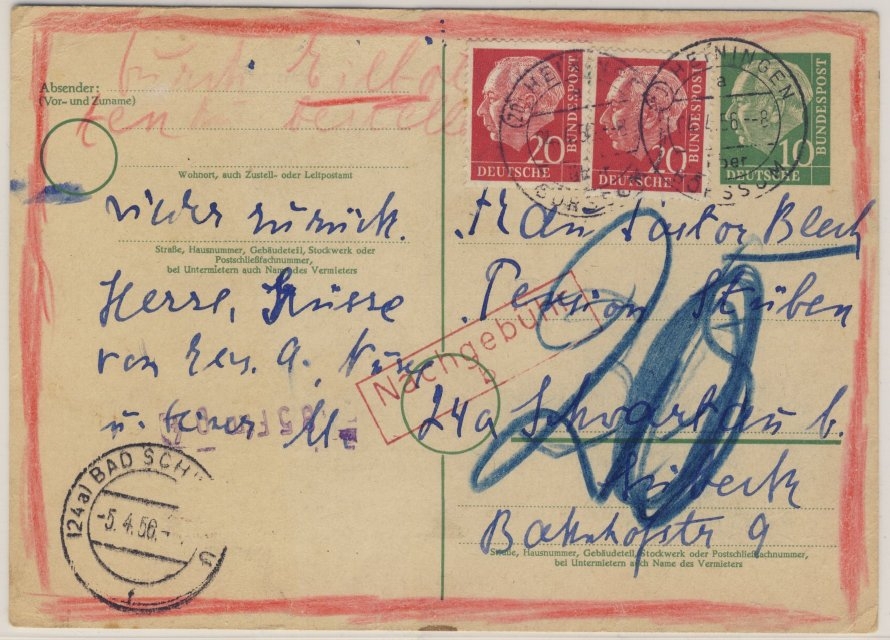 durch Eilbo
ten zu bestelle
Absender:
(Vor- und Zuname)
Wohnort, auch Zustell- oder Leitpostamt
wieder zurück.
Straße, Hausnummer, Gebäudeteil, Stockwerk oder
Postschließfachnummer,
bei Untermietern auch Name des Vermieters
Grüsse
von
u.
(24a) BAD SCH
-5.4.56.-
f
20
BUNDESPOST
DEUTSCHE
20
BUNDESPOST
DEUTSCHE
10
BUNDESPOST
DEUTSCHE
HEININGEN
a
4.56.-8
über
BÖRSSUM
Frau Pastor Blech
Pension Stüben
Nachgebühr
20
24a Schwartau b.
Lübeck
Bahnhofstr 9
Straße, Hausnummer, Gebäudeteil, Stockwerk oder Postschließfachnummer,
bei Untermietern auch Name des Vermieters